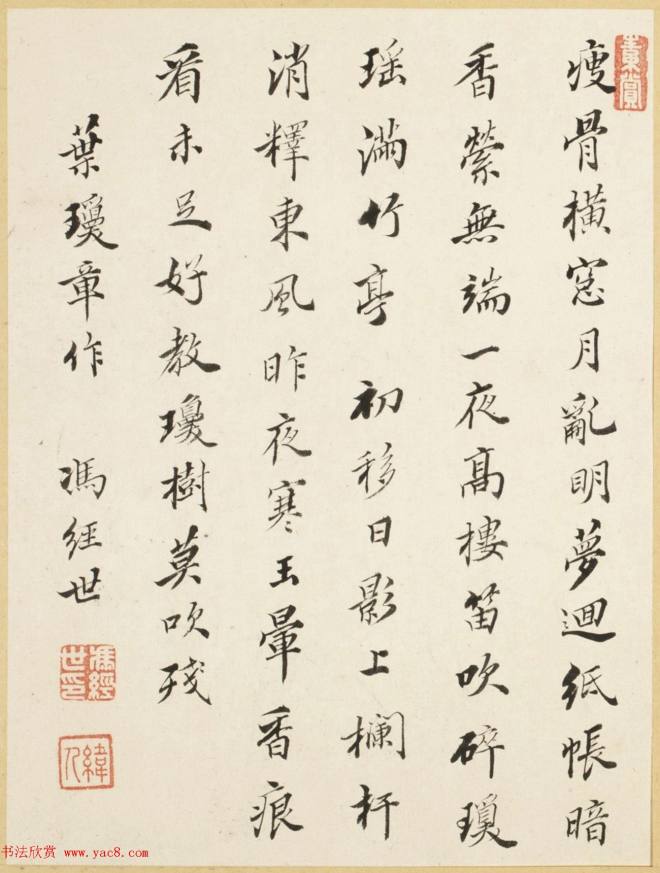 瘦骨橫窓月亂明夢迴紙帳暗
香縈無端一夜高樓笛吹碎瓊
瑶滿竹亭 初移日影上欄杆
消釋東風昨夜寒玉暈香痕
看未足好教瓊樹莫吹殘
葉瓊章作 馮經世
馮經世印
緯人
书法欣赏 www.yac8.com